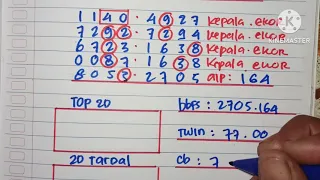 1140.4927 Kepala.ekor
7292.7294 Kepala.ekor
6723.1638 Kepala.ekor
0087.1638 Kepala ekor
8053.2705 aip: 164
TOP 20
bbfs: 2705.164
Twin: 77.00
20 Tardal
cb: 7